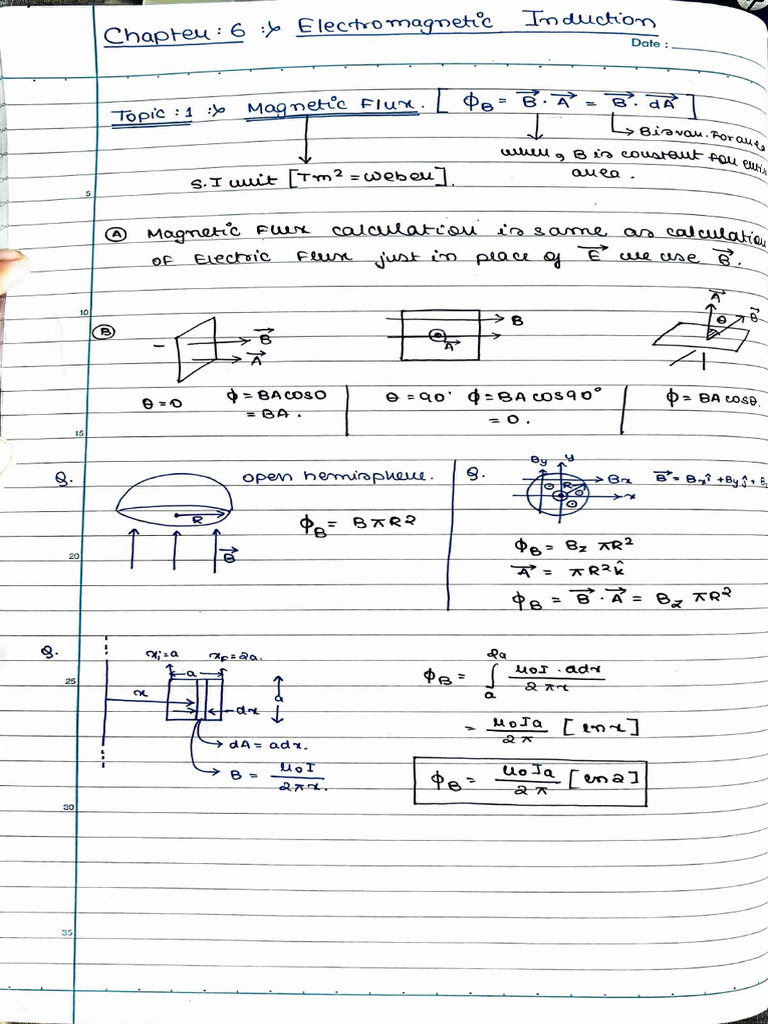 Chapter : 6 :→ Electromagnetic Induction
Date :
Topic : 1 :→ Magnetic Flux. [ ϕB = B⃗ · A⃗ = B⃗ · dA⃗ ]
→ B is var. For
when, B is constant for
area.
S.I unit [Tm² = weber].
5
Ⓐ Magnetic Flux calculation is same as calculation
of Electric Flux just in place of E⃗ we use B⃗.
10
Ⓑ
B⃗
A⃗
B
A⃗
A⃗
θ
B⃗
θ = 0 ϕ = BA cos 0
= BA.
θ = 90° ϕ = BA cos 90°
= 0.
ϕ = BA cos θ.
15
Q. open hemisphere.
R
B⃗
ϕB = B π R²
Q. By y
R
Bx
x
B⃗ = Bx î + By ĵ +
20
ϕB = Bz π R²
A⃗ = π R² k̂
ϕB = B⃗ · A⃗ = Bz π R²
Q. xi = a xf = 2a.
25
a
x
a
dx
→ dA = adx.
→ B = μ0I / 2πx.
ϕB = ∫ₐ²ᵃ μ0I · adx / 2πx
= μ0Ia / 2π [ln x]
ϕB = μ0Ia / 2π [ln 2]
30
35